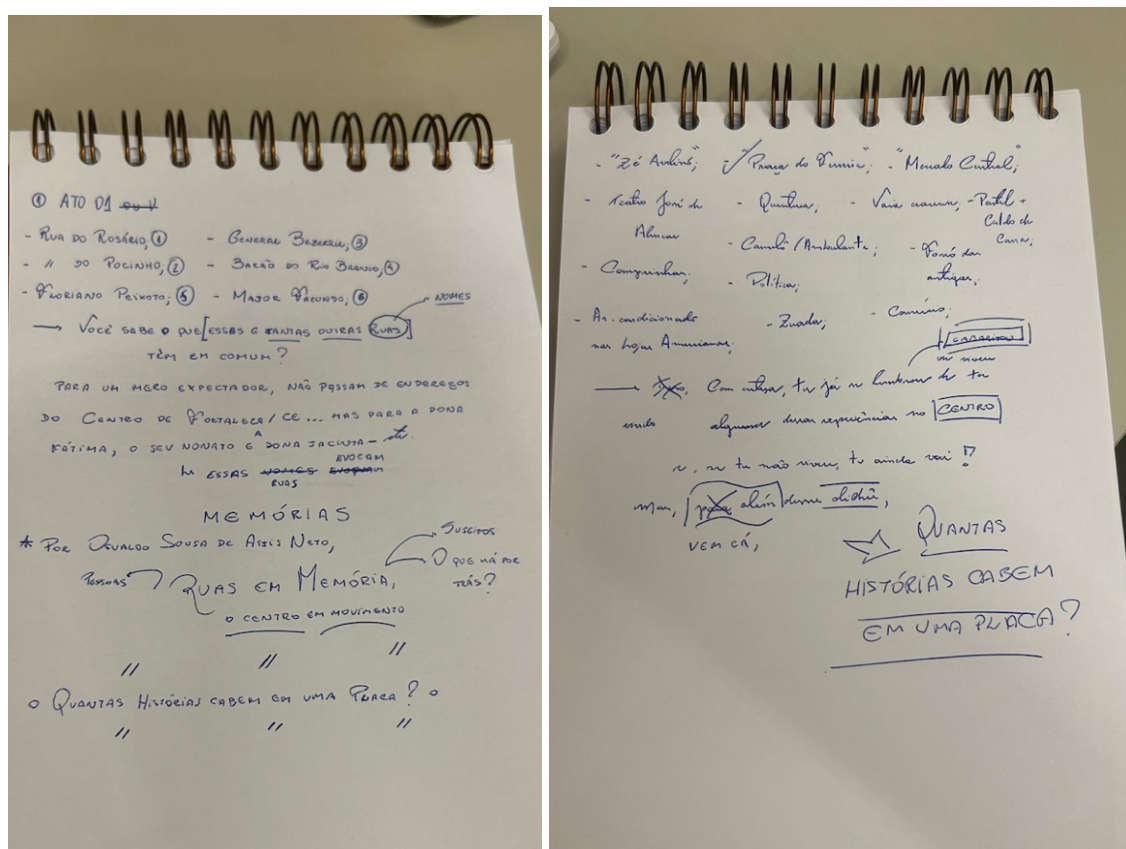 ① ATO 01 ou V
- RUA DO ROSÁRIO, ① - GENERAL BEZERRIL, ③
- " DO POCINHO, ② - BARÃO DO RIO BRANCO, ④
- FLORIANO PEIXOTO; ⑤ - MAJOR FACUNDO; ⑥
NOMES
→ VOCÊ SABE O QUE [ESSAS E TANTAS OUTRAS RUAS]
TÊM EM COMUM?
PARA UM MERO EXPECTADOR, NÃO PASSAM DE ENDEREÇOS
DO CENTRO DE FORTALEZA/CE... MAS PARA A DONA
FÁTIMA, O SEU NONATO E A DONA JACINTA -
ESSAS NOMES EVOCAM
RUAS
MEMÓRIAS
* POR OSVALDO SOUSA DE ASSIS NETO,
SUJEITOS
O QUE HÁ POR TRÁS?
PESSOAS
RUAS EM MEMÓRIA,
O CENTRO EM MOVIMENTO
// // //
o QUANTAS HISTÓRIAS CABEM EM UMA PLACA? o
// // //
- "Zé Avelino"; - "Praça da Ferreira"; - "Mercado Central";
- Teatro José de Alencar - Quentura; - Vaia cearense; - Pastel + Caldo de Cana;
- Comprinhas; - Camelô/Ambulante; - Forró das antigas;
- Política;
- Ar-condicionado nas Lojas Americanas; - Zuada; - Comércio;
→ Com certeza, tu já se lembrou de ter
ou viveu
vivido alguma dessas experiências no CENTRO
e, se tu não viveu, tu ainda vai!?
Mas, para além desse clichê,
VEM CÁ,
QUANTAS
HISTÓRIAS CABEM
EM UMA PLACA?